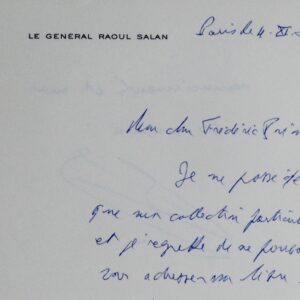 LE GÉNÉRAL RAOUL SALAN
Paris le 4
Mon cher Frédéric
Je ne possède
que ma collection particul
et je regrette de ne pouvo
vous adresser un livre